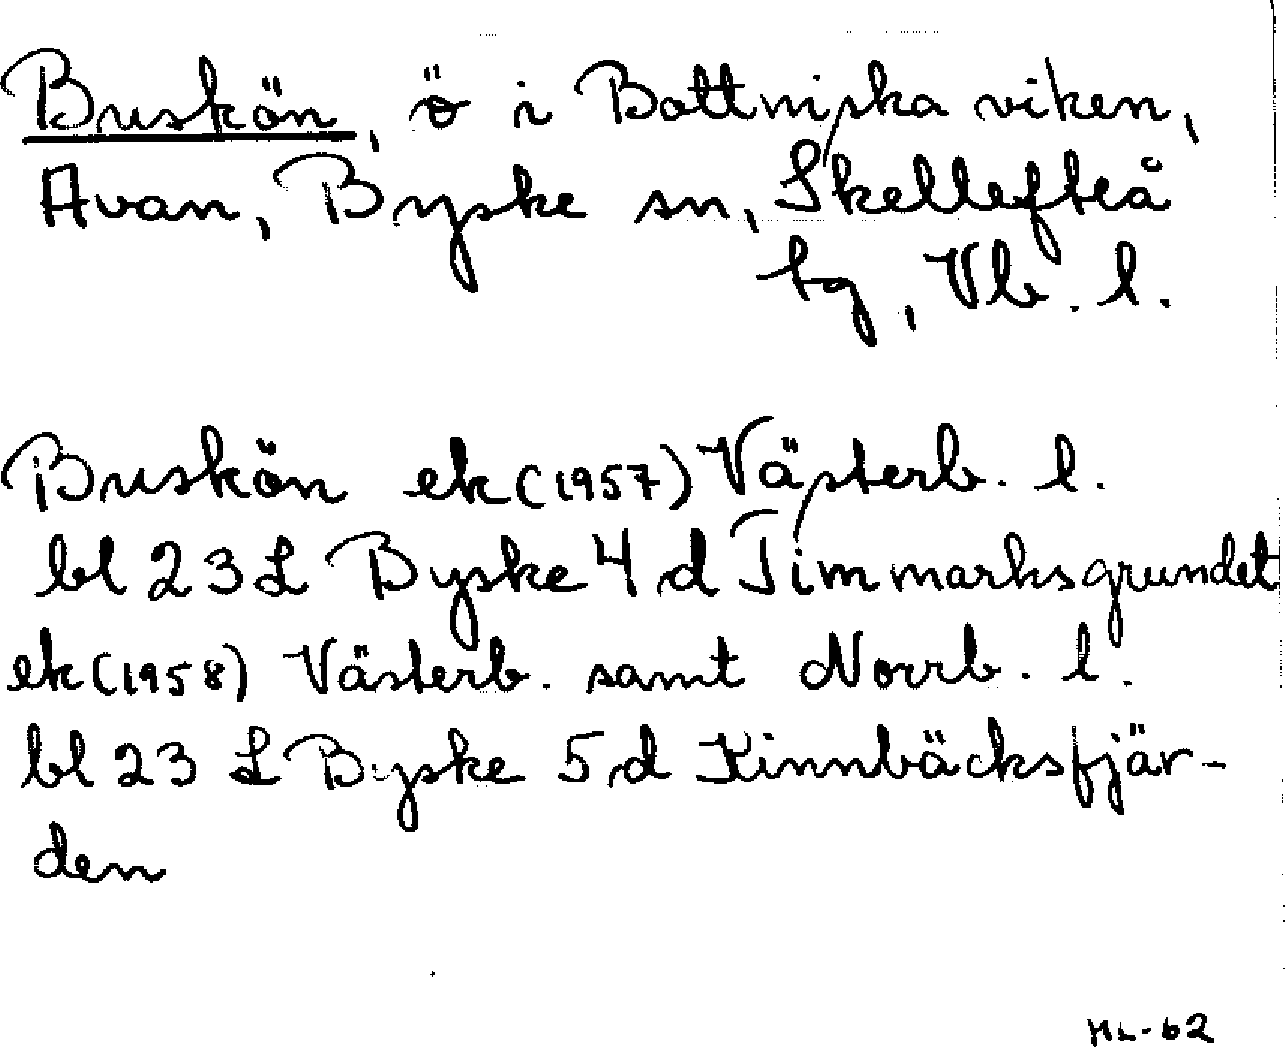 Buskön, ö i Bottniska viken,
Avan, Byske sn, Skellefteå
tg, Vb. l.
Buskön ek (1957) Västerb. l.
bl 23 L Byske 4 d Timmarksgrundet
ek (1958) Västerb. samt Norrb. l.
bl 23 L Byske 5 d Kinnbäcksfjär-
den
HL-62